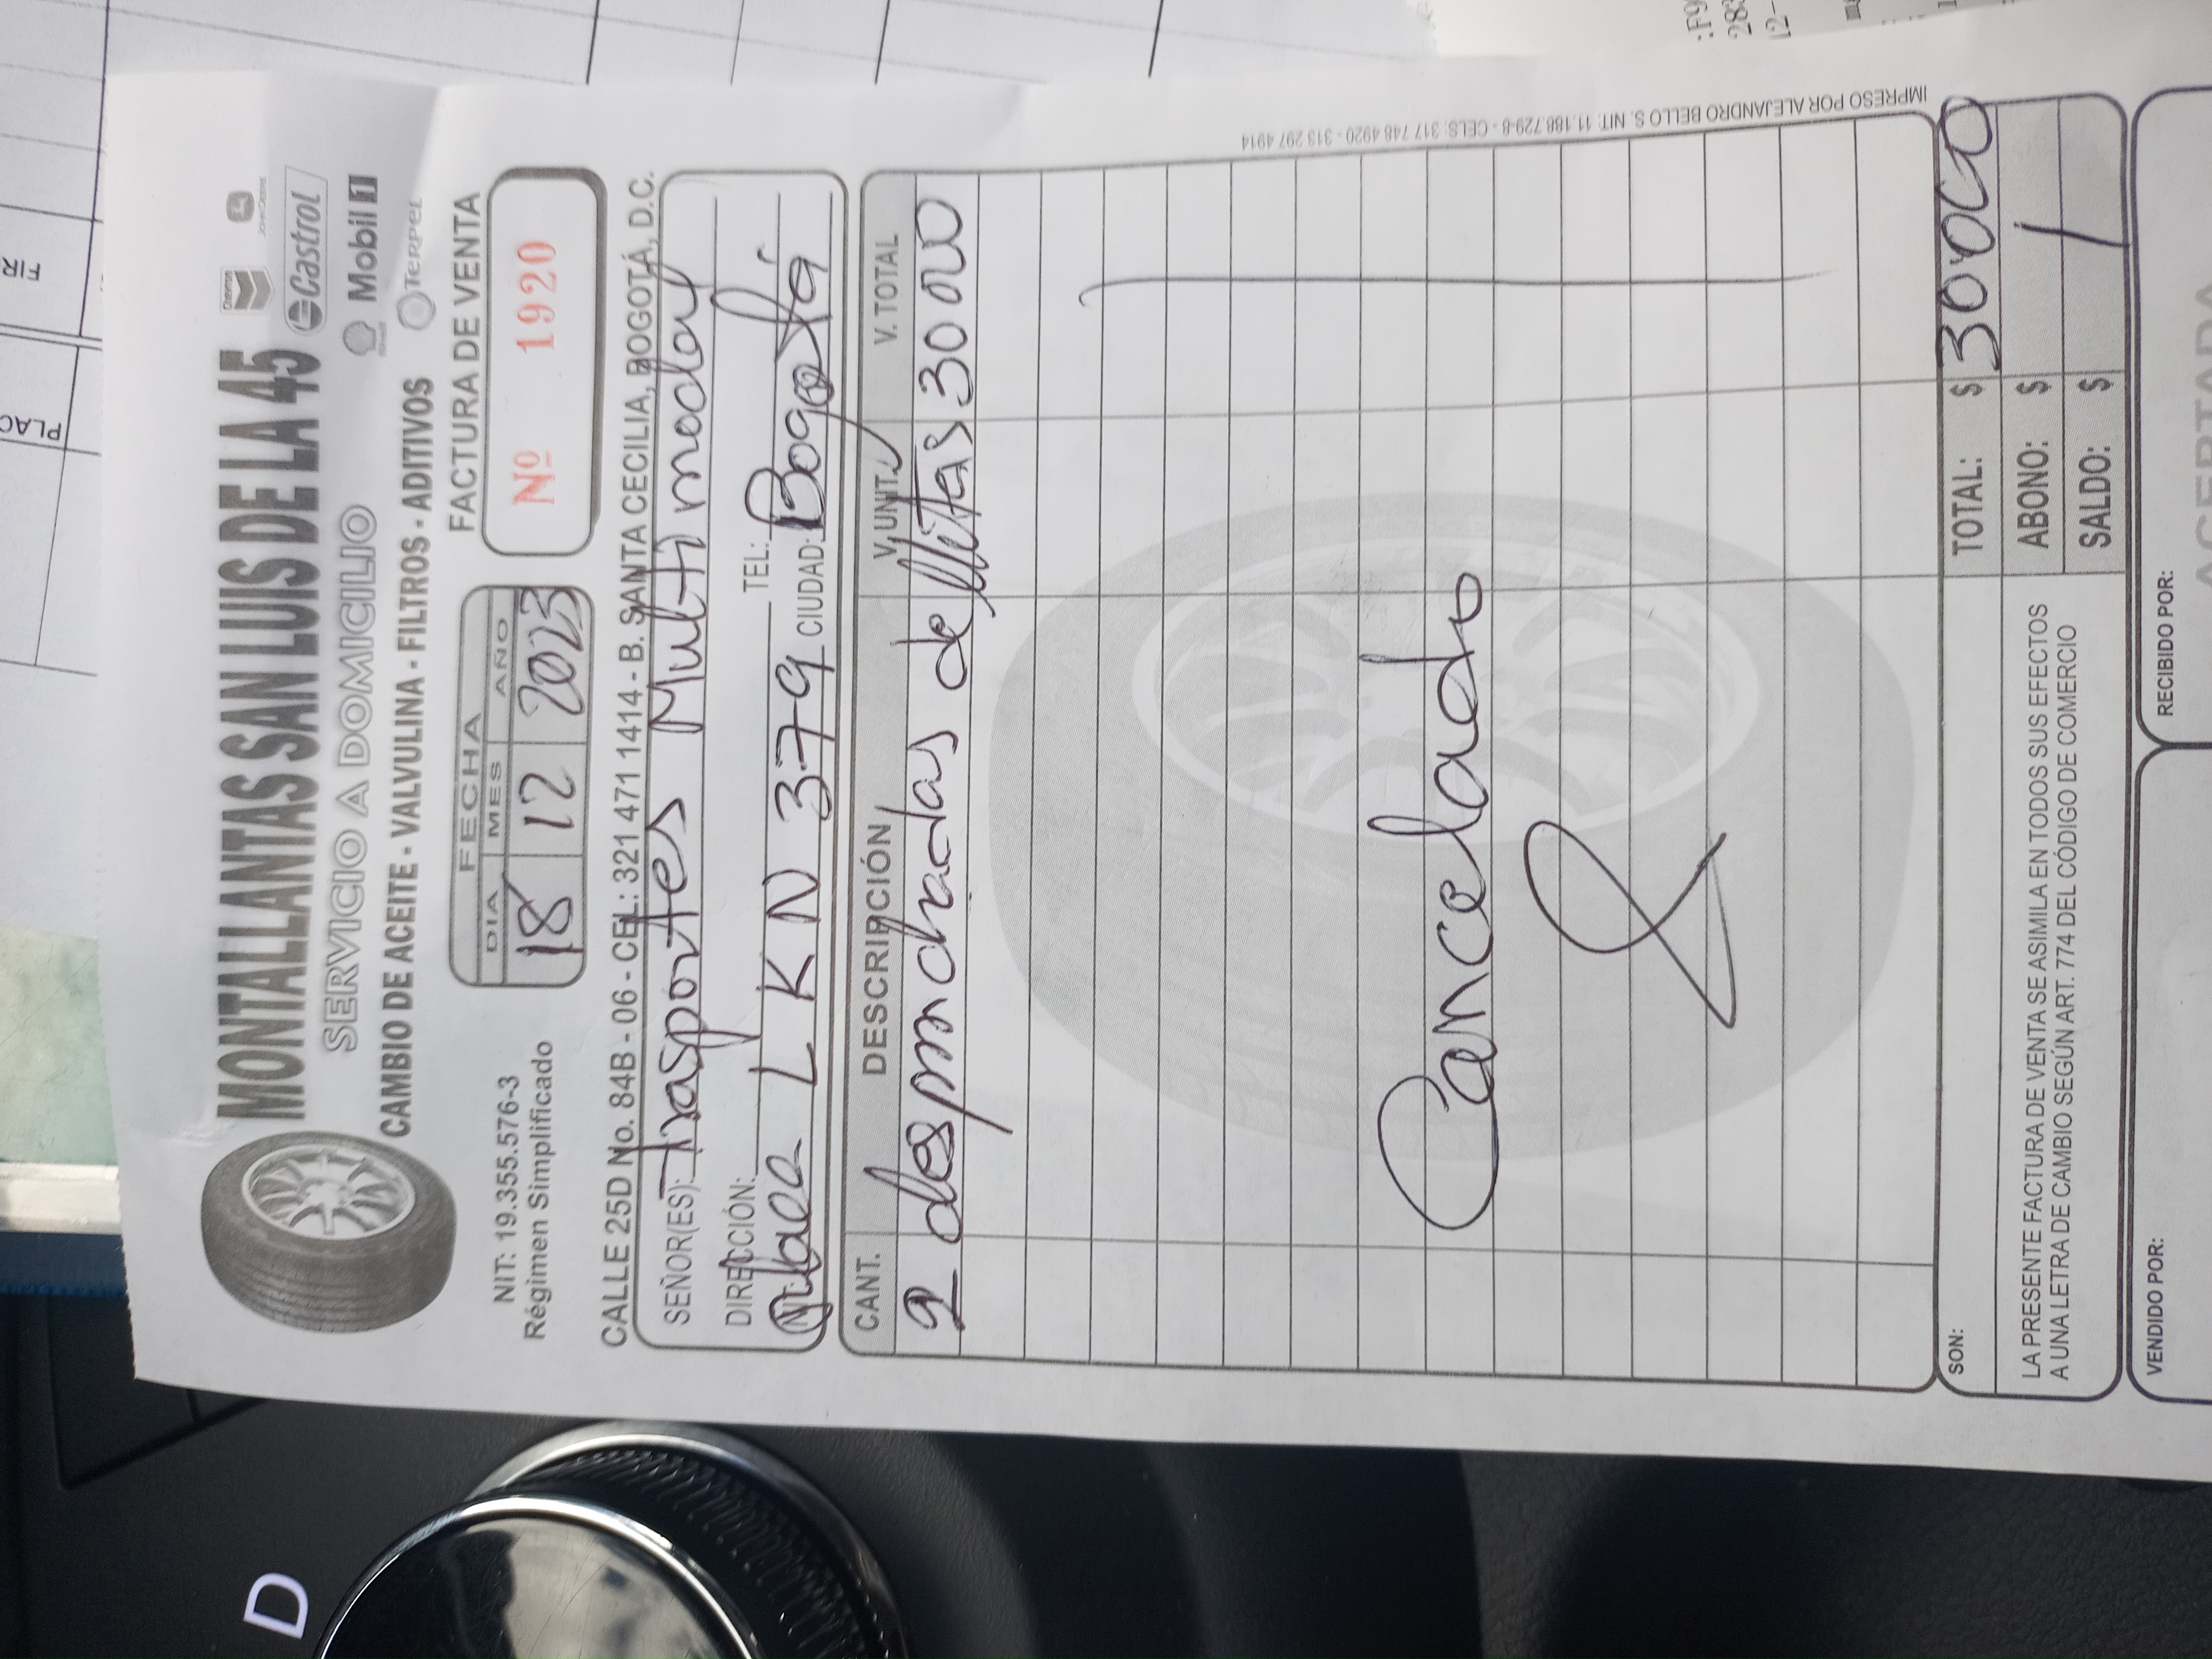 MONTALLANTAS SAN LUIS DE LA 45
SERVICIO A DOMICILIO
CAMBIO DE ACEITE - VALVULINA - FILTROS - ADITIVOS
Chevron
JOHN DEERE
Castrol
Shell
Mobil 1
TERPEL
NIT: 19.355.576-3
Régimen Simplificado
FECHA
DIA MES AÑO
18 12 2023
FACTURA DE VENTA
Nº 1920
CALLE 25D No. 84B - 06 - CEL: 321 471 1414 - B. SANTA CECILIA, BOGOTÁ, D.C.
SEÑOR(ES): Trasportes Multimodal
DIRECCIÓN: TEL:
Placa LKN 379 CIUDAD: Bogotá
CANT. DESCRIPCIÓN V. UNT. V. TOTAL
2 despinchadas de llitas 30000
Cancelado
SON:
TOTAL: $ 30000
ABONO: $
SALDO: $
LA PRESENTE FACTURA DE VENTA SE ASIMILA EN TODOS SUS EFECTOS
A UNA LETRA DE CAMBIO SEGÚN ART. 774 DEL CÓDIGO DE COMERCIO
VENDIDO POR:
RECIBIDO POR:
ACEPTADA
IMPRESO POR ALEJANDRO BELLO S. NIT. 11.188.729-8 - CELS: 317 748 4920 - 313 297 4914
D
PLAC
FIR